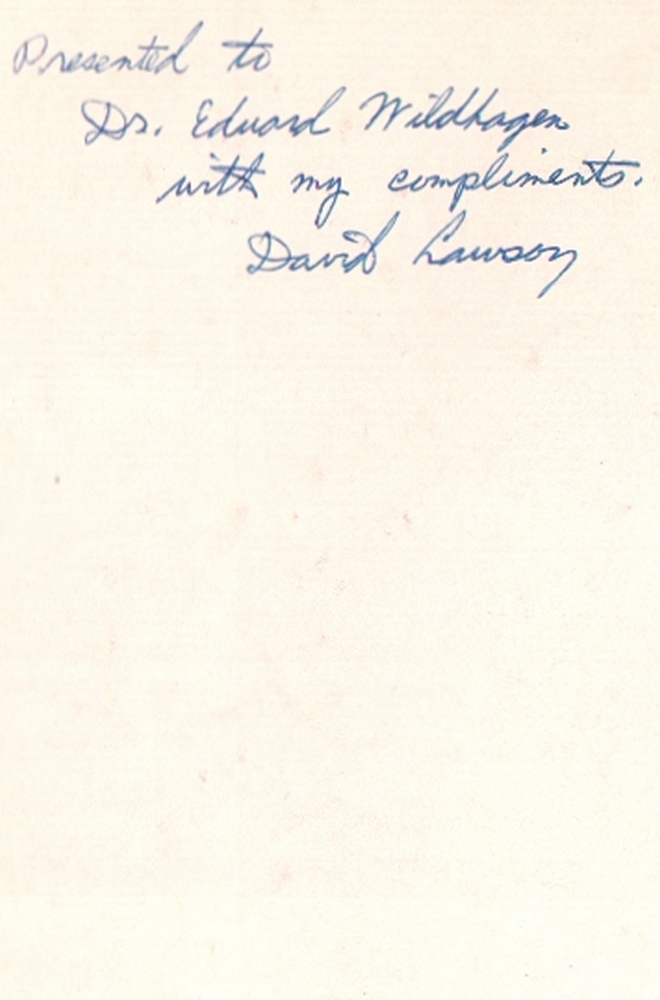 Presented to
Dr. Eduard Wildhagen
with my compliments.
David Lawson